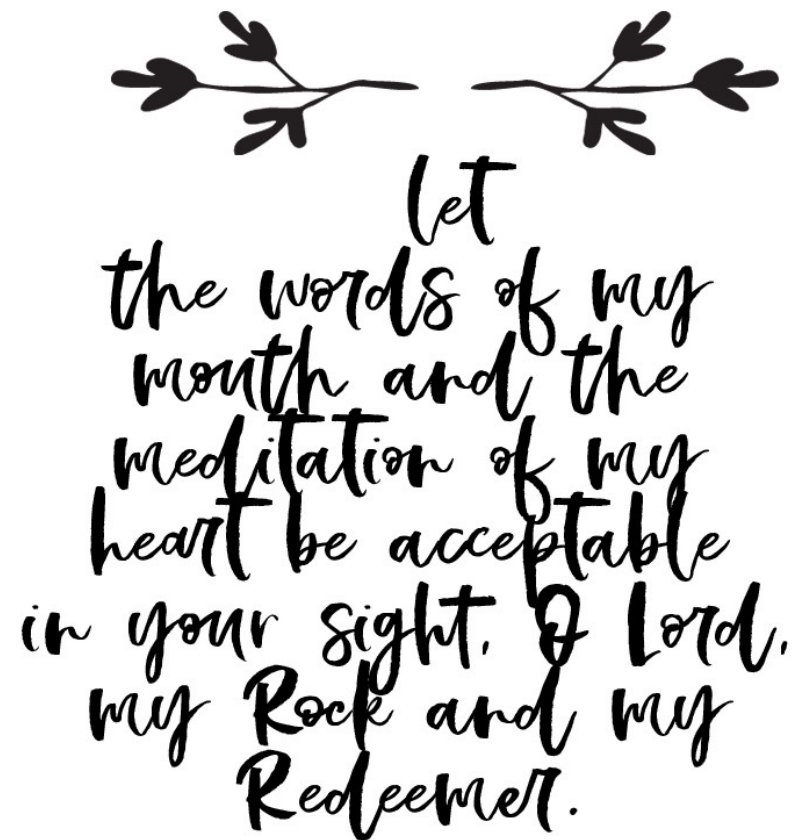 let
the words of my
mouth and the
meditation of my
heart be acceptable
in your sight, O Lord,
my Rock and my
Redeemer.